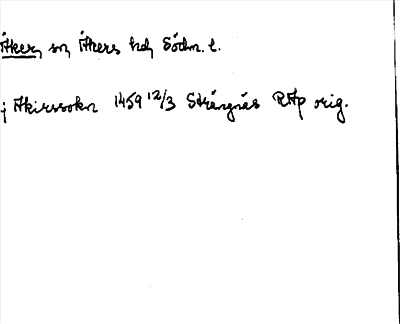 Åker, sn, Åkers hd, Södm. l.
j Akirssokn 1459 12/3 Strängnäs RAp orig.